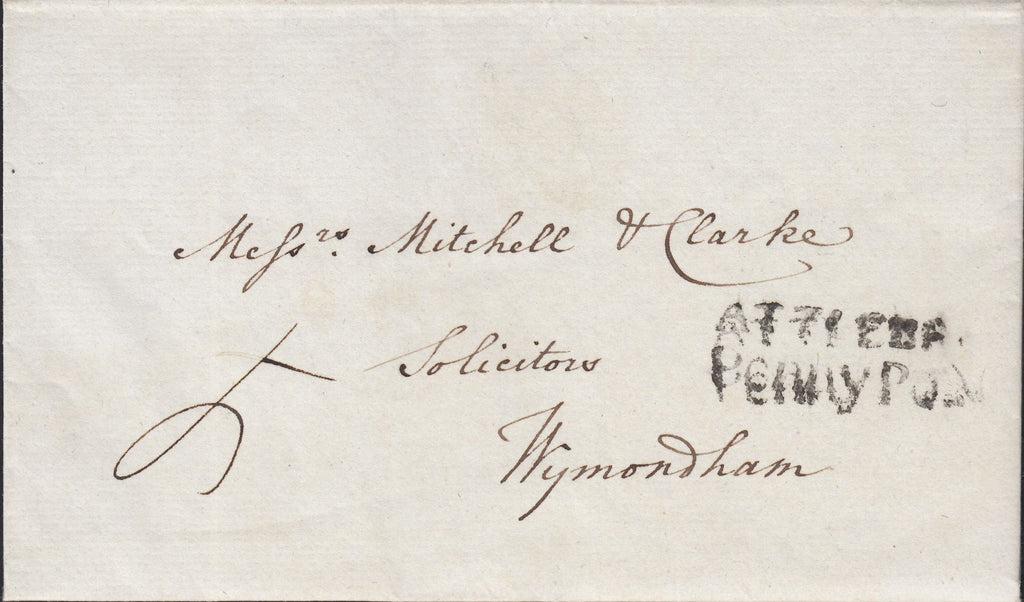 Meſsrs. Mitchell & Clarke
Solicitors
Wymondham
5
ATTLEBR.
Penny Post